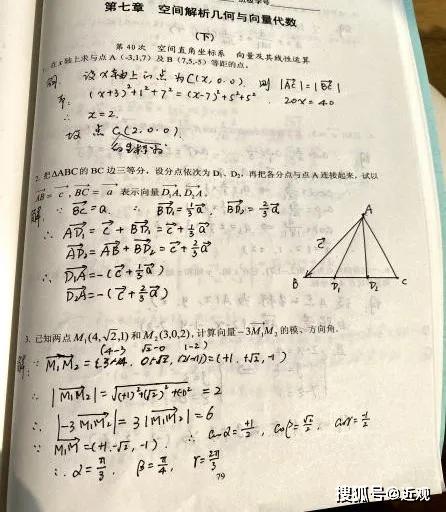 第七章 空间解析几何与向量代数
(下)
第 40 次 空间直角坐标系 向量及其线性运算
1. 在 x 轴上求与点 A (-3,1,7) 及 B (7,5,-5) 等距的点。
解: 设 x 轴上的点为 C(x, 0.0). 则 |AC| = |BC|
即: (x+3)²+1²+7² = (x-7)²+5²+5² 20x=40
∴ x=2.
故 点 C(2.0.0)
为所求
2. 把ΔABC 的 BC 边三等分, 设分点依次为 D₁、D₂, 再把各分点与点 A 连接起来, 试以
AB = c , BC = a 表示向量 D₁A, D₂A。
解: ∵ BC = a. ∴ BD₁ = 1/3 a, BD₂ = 2/3 a
∴ AD₁ = c + BD₁ = c + 1/3 a
AD₂ = AB + BD₂ = c + 2/3 a
∴ D₁A = -(c + 1/3 a)
D₂A = -(c + 2/3 a)
A
c
B D₁ D₂ C
3. 已知两点 M₁(4,√2,1) 和 M₂(3,0,2), 计算向量 -3M₁M₂ 的模、方向角.
|M₁M₂| = √((+1)²+(√2)²+(-1)²) = 2
∴ |-3M₁M₂| = 3|M₁M₂| = 6
∴ α = π/3, β = π/4, γ = 2π/3
79
搜狐号@近观